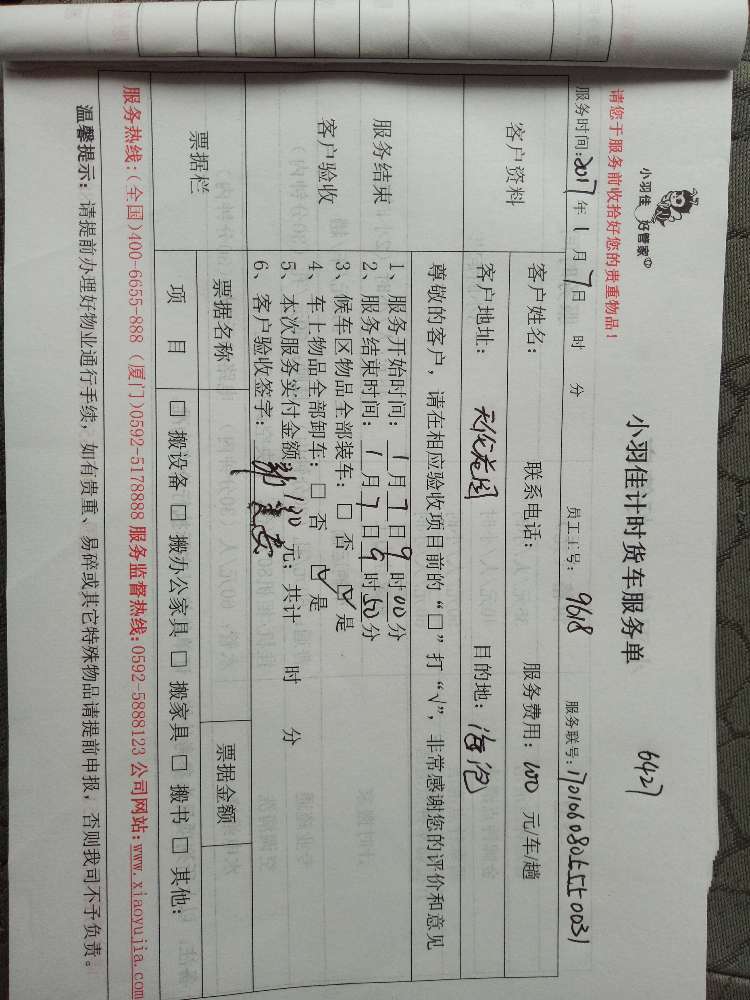 小羽佳 好管家
小羽佳计时货车服务单
6427
请您于服务前收拾好您的贵重物品！
服务时间：2017年 1月 7日 时 分 员工工号：9618 服务联号：17010608055550031
客户资料
客户姓名： 联系电话： 服务费用：100 元/车/趟
客户地址： 目的地：海沧
服务结束
客户验收
尊敬的客户，请在相应验收项目前的“□”打“√”，非常感谢您的评价和意见
1、服务开始时间：1月7日9时00分
2、服务结束时间：1月7日9时50分
3、候车区物品全部装车：□ 否 ☑ 是
4、车上物品全部卸车：□ 否 ☑ 是
5、本次服务实付金额 100 元；共计 时 分
6、客户验收签字：
票据栏
票据名称 票据金额
项 目 □ 搬设备 □ 搬办公家具 □ 搬家具 □ 搬书 □ 其他：
服务热线：(全国)400-6655-888 (厦门)0592-5178888 服务监督热线：0592-5888123 公司网站：www.xiaoyujia.com
温馨提示：请提前办理好物业通行手续，如有贵重、易碎或其它特殊物品请提前申报，否则我司不予负责。